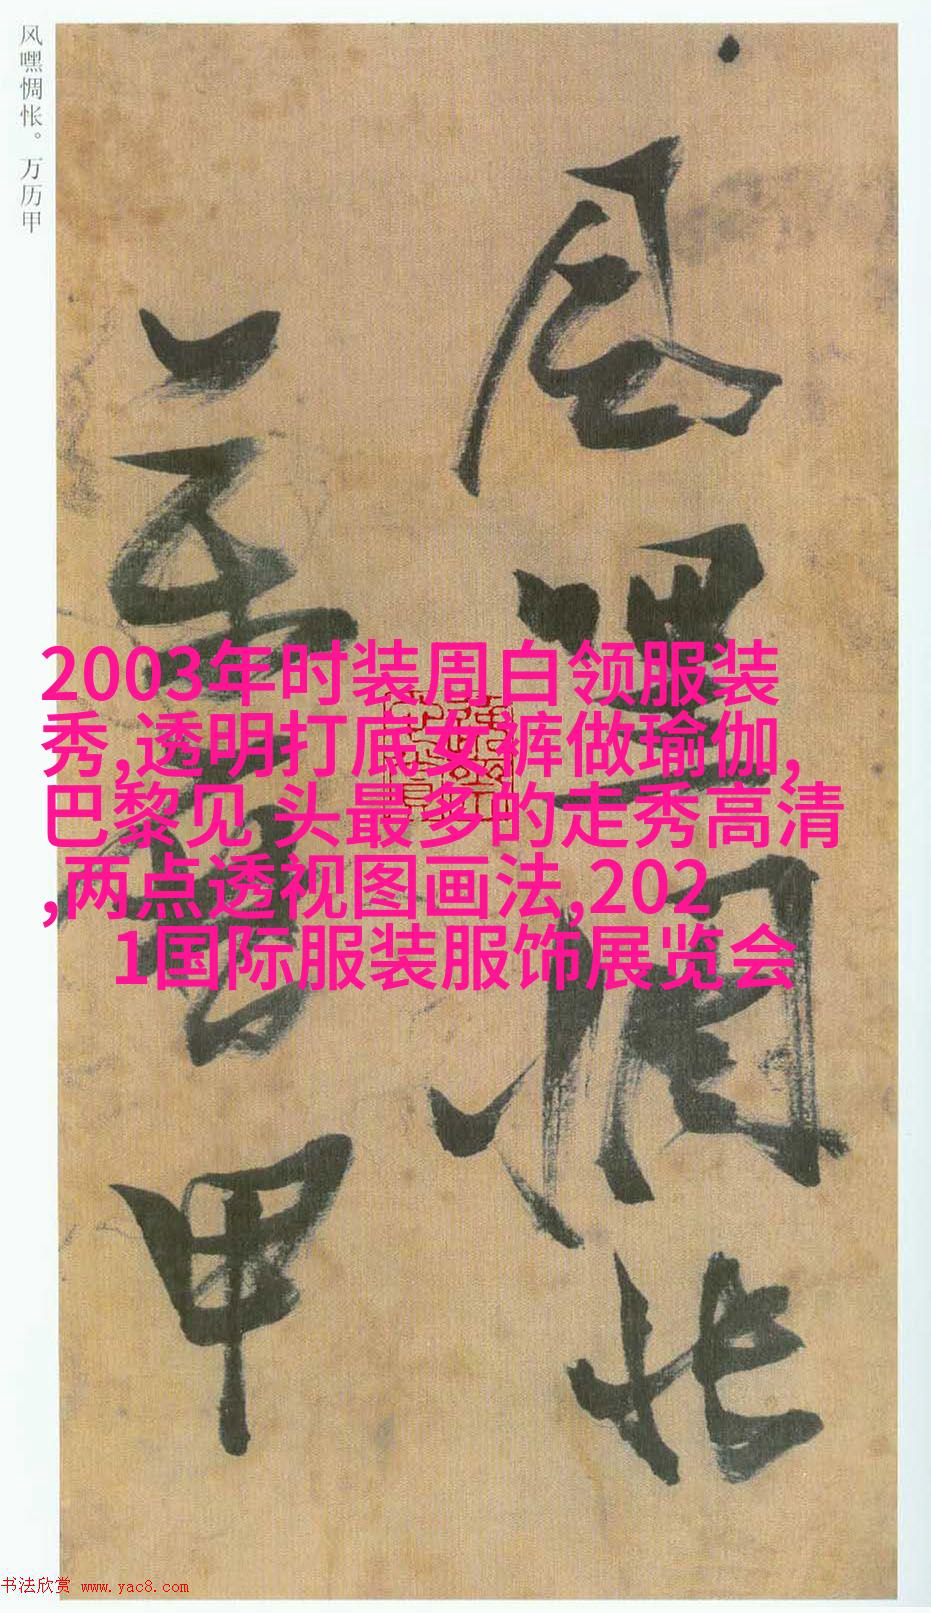 风嘿惆怅。万历甲
风嘿惆怅
万历甲
2003年时装周白领服装
秀,透明打底女裤做瑜伽,
巴黎见 头最多的走秀高清
,两点透视图画法,202
1国际服装服饰展览会
书法欣赏 www.yac8.com